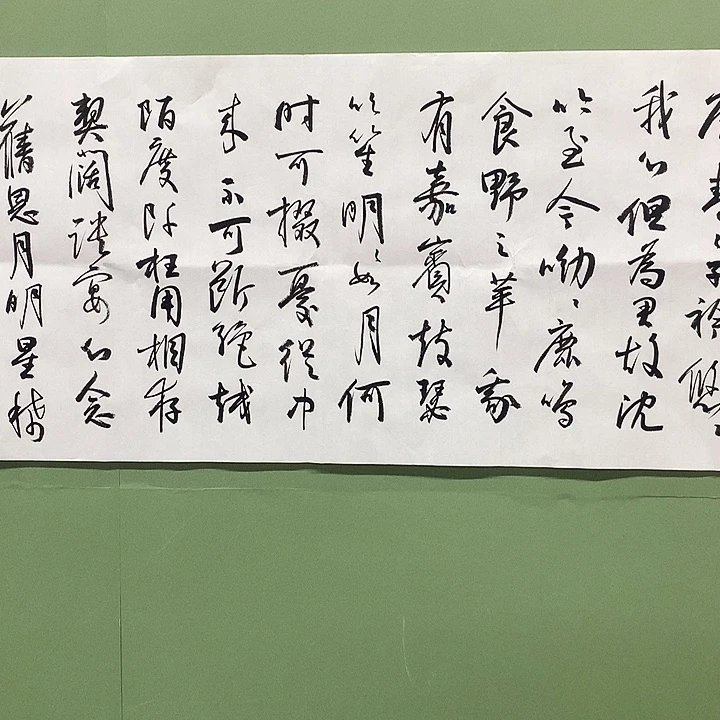 青々子衿悠
我心但為君故沈
吟至今呦々鹿鳴
食野之苹我
有嘉賓鼓瑟
吹笙明々如月何
时可掇憂從中
来不可断絕越
陌度阡枉用相存
契闊談宴心念
舊恩月明星稀